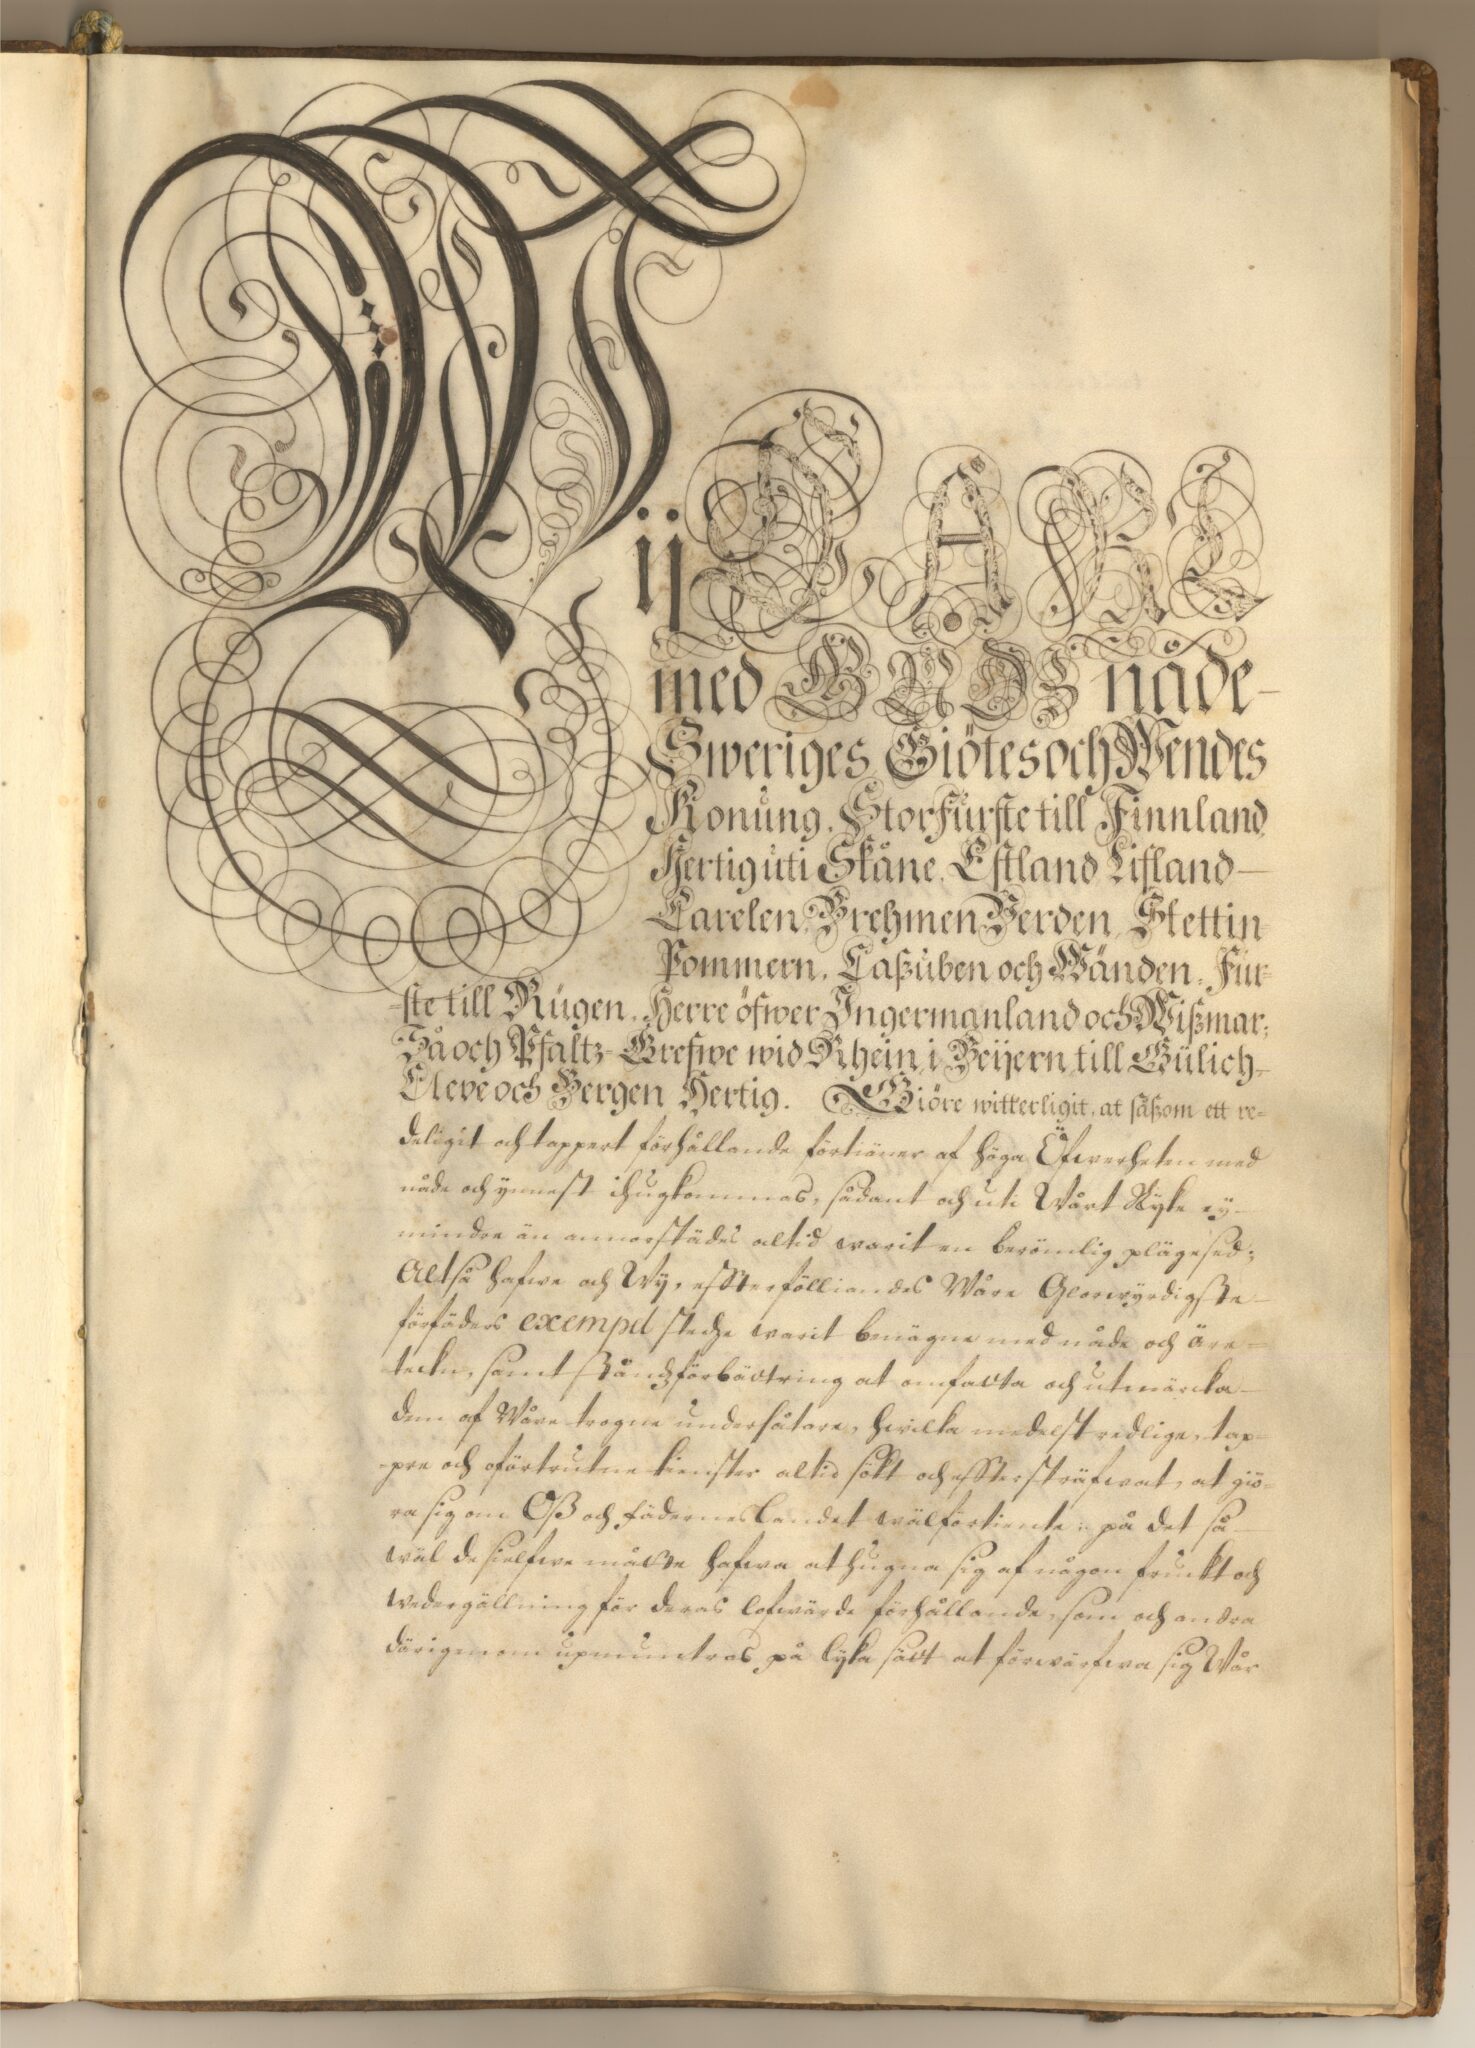 Wij CARL
med GUDZ nåde
Sweriges Giötes och Wendes
Konung, StorFurste till Finnland
Hertig uti Skåne, Estland Lifland
Carelen, Brehmen Verden, Stettin
Pommern, Caßuben och Wänden, Fur-
-ste till Rügen, Herre öfwer Ingermanland och Wißmar,
Så och Pfaltz-Grefwe wid Rhein i Beijern, till Gülich,
Cleve och Bergen Hertig. Giöre witterligit, at såßom ett re-
deligit och tappert förhållande förtiäner af höga Öfwerheten med
nåde och ynnest ihugkommas, sådant och uti Wårt Ryke ey
mindre än annorstädes altid warit en berömlig plägesed;
Altså hafwe och Wij, effterfölliandes Wåre Glorwyrdigste
förfäders exempel stedze warit benägne med nåde och äre-
teckn, samt Ståndzförbättring at omfatta och utmärcka
dem af Wåre trogne undersåtare, hwilka medelst redlige, tap-
-pre och oförtrutne tienster altid sökt och effterstråfwat, at giö-
ra sig om Oß och fäderneslandet wälförtiente; på det så
wäl de sielfwe måtte hafwa at hugna sig af någon fruckt och
wedergällning för deras lofwärde förhållande, som och andra
därigenom upmuntras på lyka sätt at förwärfwa sig Wår